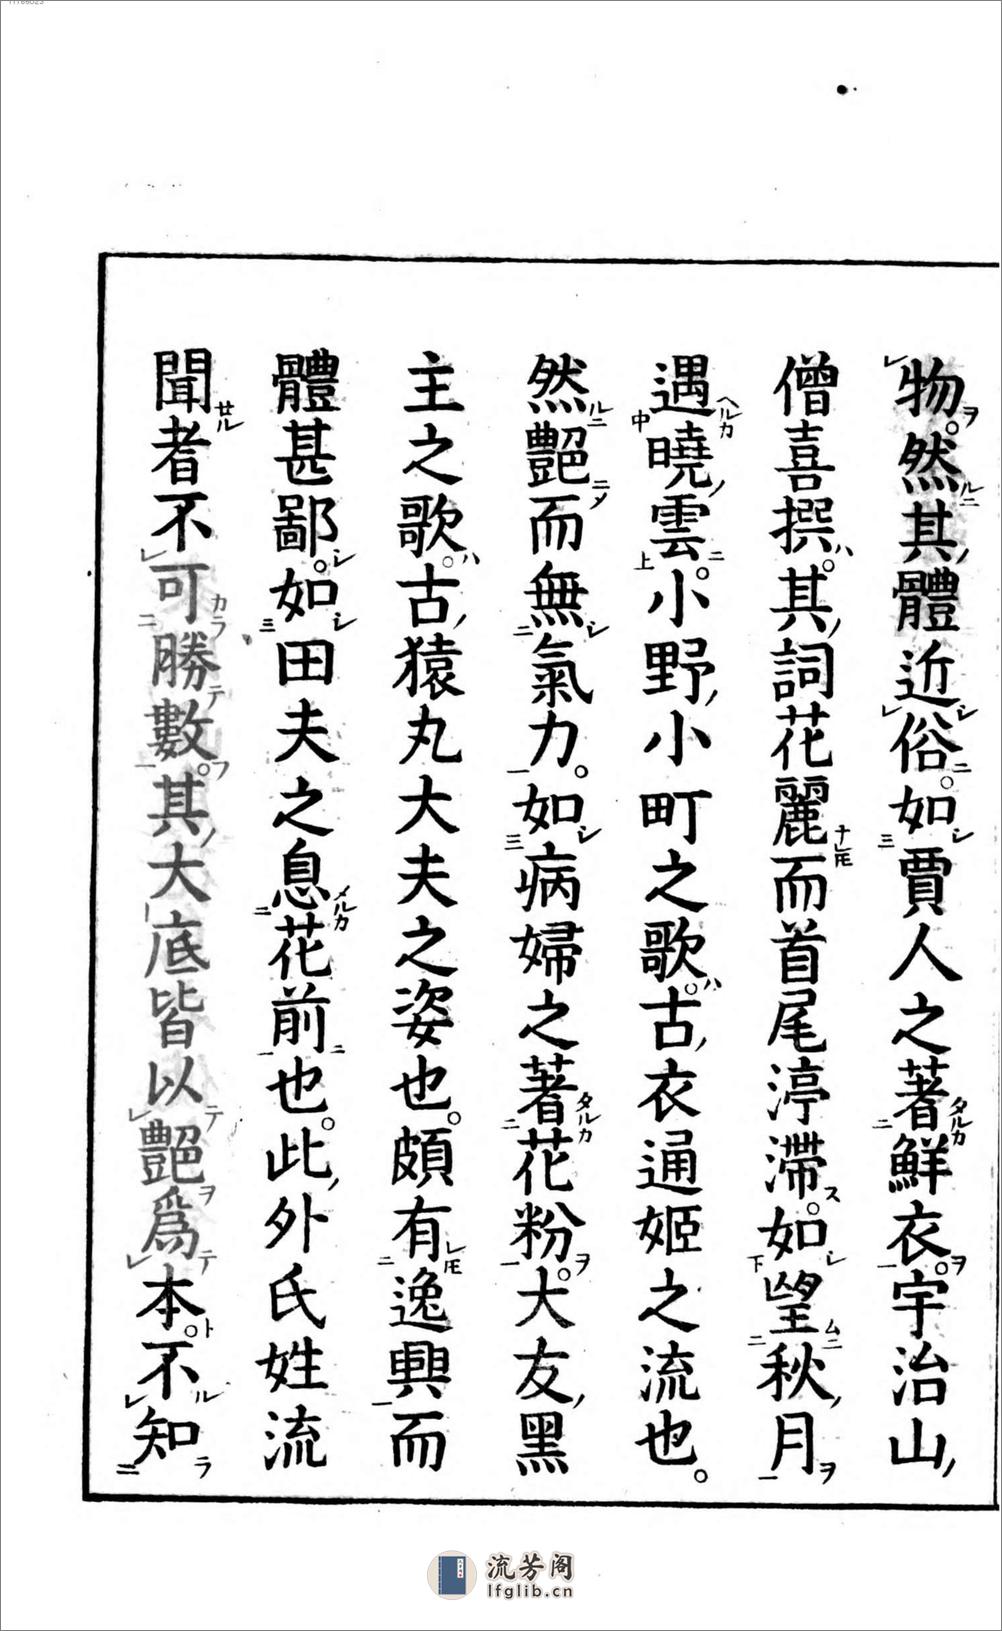 物然其體近俗如賈人之著鮮衣宇治山
僧喜撰其詞花麗而首尾渟滯如望秋月
遇曉雲小野小町之歌古衣通姬之流也
然艷而無氣力如病婦之著花粉大友黑
主之歌古猿丸大夫之姿也頗有逸興而
體甚鄙如田夫之息花前也此外氏姓流
聞者不可勝數其大底皆以艷爲本不知
流芳阁
lfglib.cn